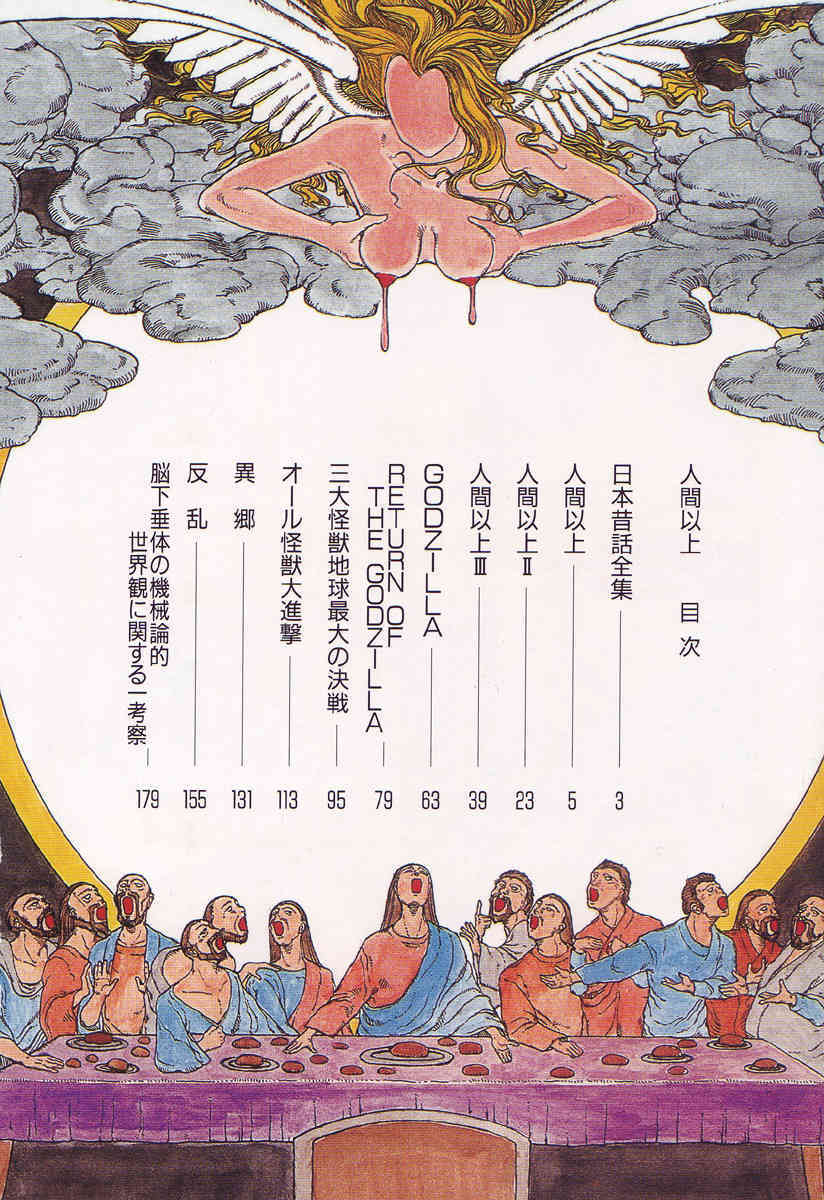 人間以上 目次
日本昔話全集 3
人間以上 5
人間以上Ⅱ 23
人間以上Ⅲ 39
GODZILLA 63
RETURN OF
THE GODZILLA 79
三大怪獣地球最大の決戦 95
オール怪獣大進撃 113
異郷 131
反乱 155
脳下垂体の機械論的
世界観に関する一考察 179